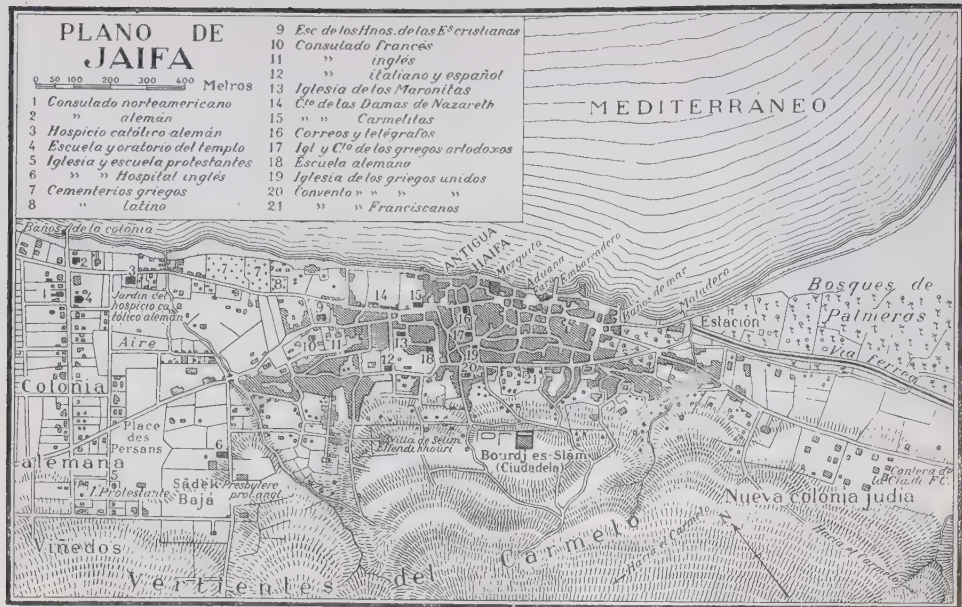 PLANO DE
JAIFA
0 50 100 200 300 400 Metros
1 Consulado norteamericano
2 " alemán
3 Hospicio católico alemán
4 Escuela y oratorio del templo
5 Iglesia y escuela protestantes
6 " " Hospital inglés
7 Cementerios griegos
8 " latino
9 Esc de los Hnos. de las Es cristianas
10 Consulado francés
11 " inglés
12 " italiano y español
13 Iglesia de los Maronitas
14 Cto de las Damas de Nazareth
15 " " Carmelitas
16 Correos y telégrafos
17 Igl y Cto de los griegos ortodoxos
18 Escuela alemana
19 Iglesia de los griegos unidos
20 Convento " " " "
21 " " Franciscanos
MEDITERRÁNEO
Baños de la colonia
ANTIGUA
JAIFA
Mezquita
Aduana
Faro
Embarcadero
Baños de mar
Matadero
Bosques de
Palmeras
Estación
Vía férrea
2
3
7
7
8
1
4
Jardín del
hospicio ca-
tólico alemán
Aire
9
10
11
14
15
16
13
17
12
18
19
20
21
Colonia
alemana
Place
des
Persans
6
5
I. Protestante
Sadek
Bajá
Presbytere
prot. angl.
Villa de Selim
Effendi khouri
Bourdj es-Slam
(Ciudadela)
Cantera de
la Cía de F.C.
Nueva colonia judía
Viñedos
Vertientes del Carmelo
Hacia el Carmelo
N
Hacia el Carmelo